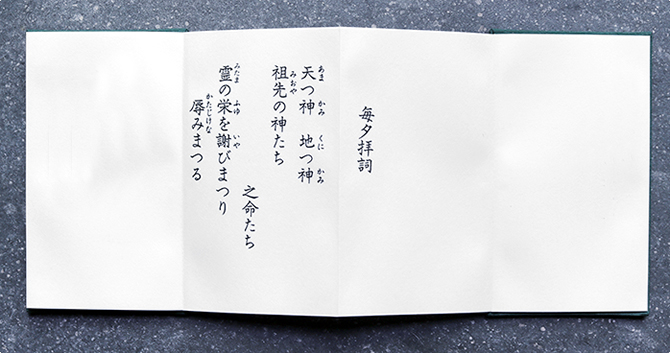 毎夕拝詞
天つ神　地つ神
祖先の神たち
之命たち
霊の栄を謝びまつり
辱みまつる